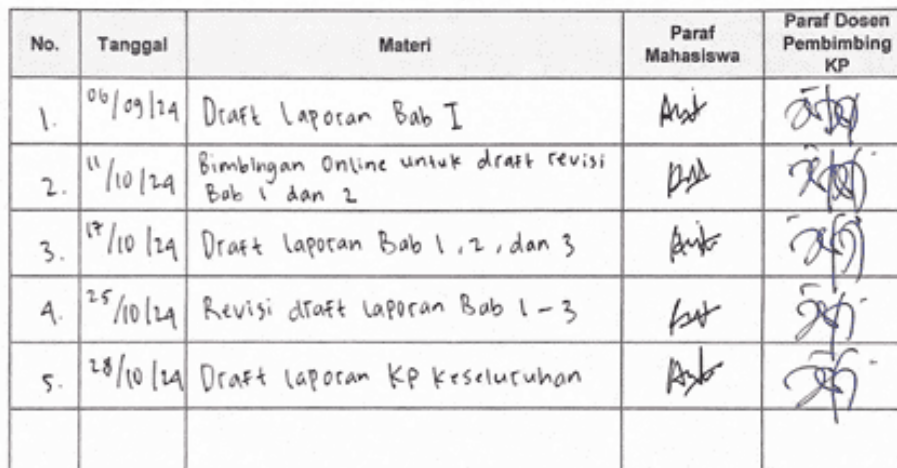 No. Tanggal Materi Paraf Mahasiswa Paraf Dosen Pembimbing KP
1. 06/09/24 Draft laporan Bab I
2. 11/10/24 Bimbingan Online untuk draft revisi
Bab 1 dan 2
3. 17/10/24 Draft laporan Bab 1, 2, dan 3
4. 25/10/24 Revisi draft laporan Bab 1-3
5. 28/10/24 Draft laporan KP keseluruhan